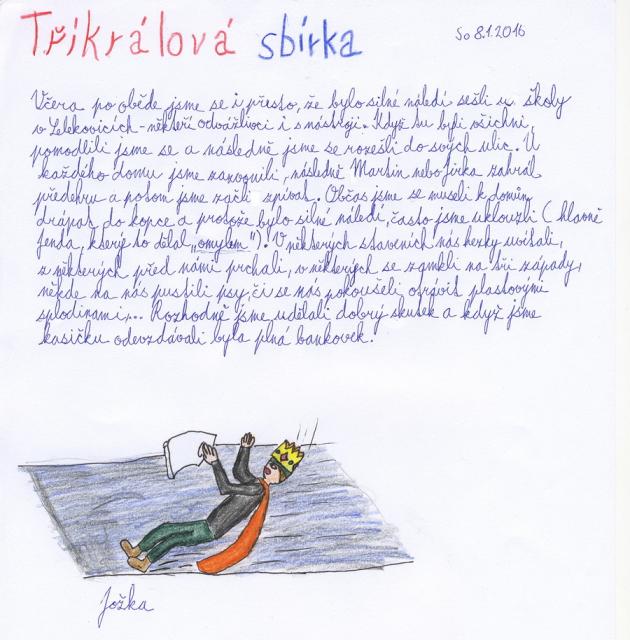 Tříkrálová sbírka
So 8.1.2016
Včera po obědě jsme se i přesto, že bylo silné náledí sešli u školy
v Lelekovicích - někteří odvážlivci i s nástroji. Když tu byli všichni,
pomodlili jsme se a následně jsme se rozešli do svých ulic. U
každého domu jsme zazvonili, následně Martin nebo Jirka zahrál
předehru a potom jsme začli zpívat. Občas jsme se museli k domům
drápat do kopce a protože bylo silné náledí, často jsme uklouzli (hlavně
Jenda, který to dělal „omylem"). V některých staveních nás hezky uvítali,
z některých před námi prchali, v některých se zamkli na tři západy,
někde na nás pustili psy, či se nás pokoušeli otrávit plastovými
splodinami,... Rozhodně jsme udělali dobrý skutek a když jsme
kasičku odevzdávali byla plná bankovek.
Jožka